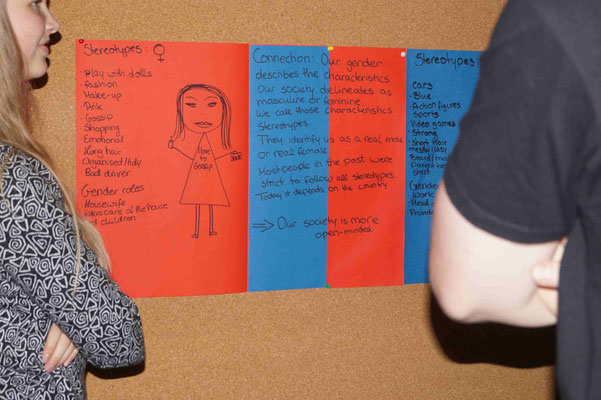 Stereotypes: ♀
- Play with dolls
- Fashion
- Make-up
- Pink
- Gossip
- Shopping
- Emotional
- Long hair
- Organised/tidy
- Bad driver
Gender roles:
- Housewife
- takes care of the house
children
Gossip
Connection: Our gender
describes the characteristics
Our society delineates as
masculine or feminine.
We call those characteristics
Stereotypes.
They identify us as a real male
or real female.
Most people in the past were
strict to follow all stereotypes.
Today it depends on the country
⇒ Our society is more
open-minded
Stereotypes
- Cars
- Blue
- Action figures
- Sports
- Video games
- Strong
- Short Hair
- messy/lazy
strict